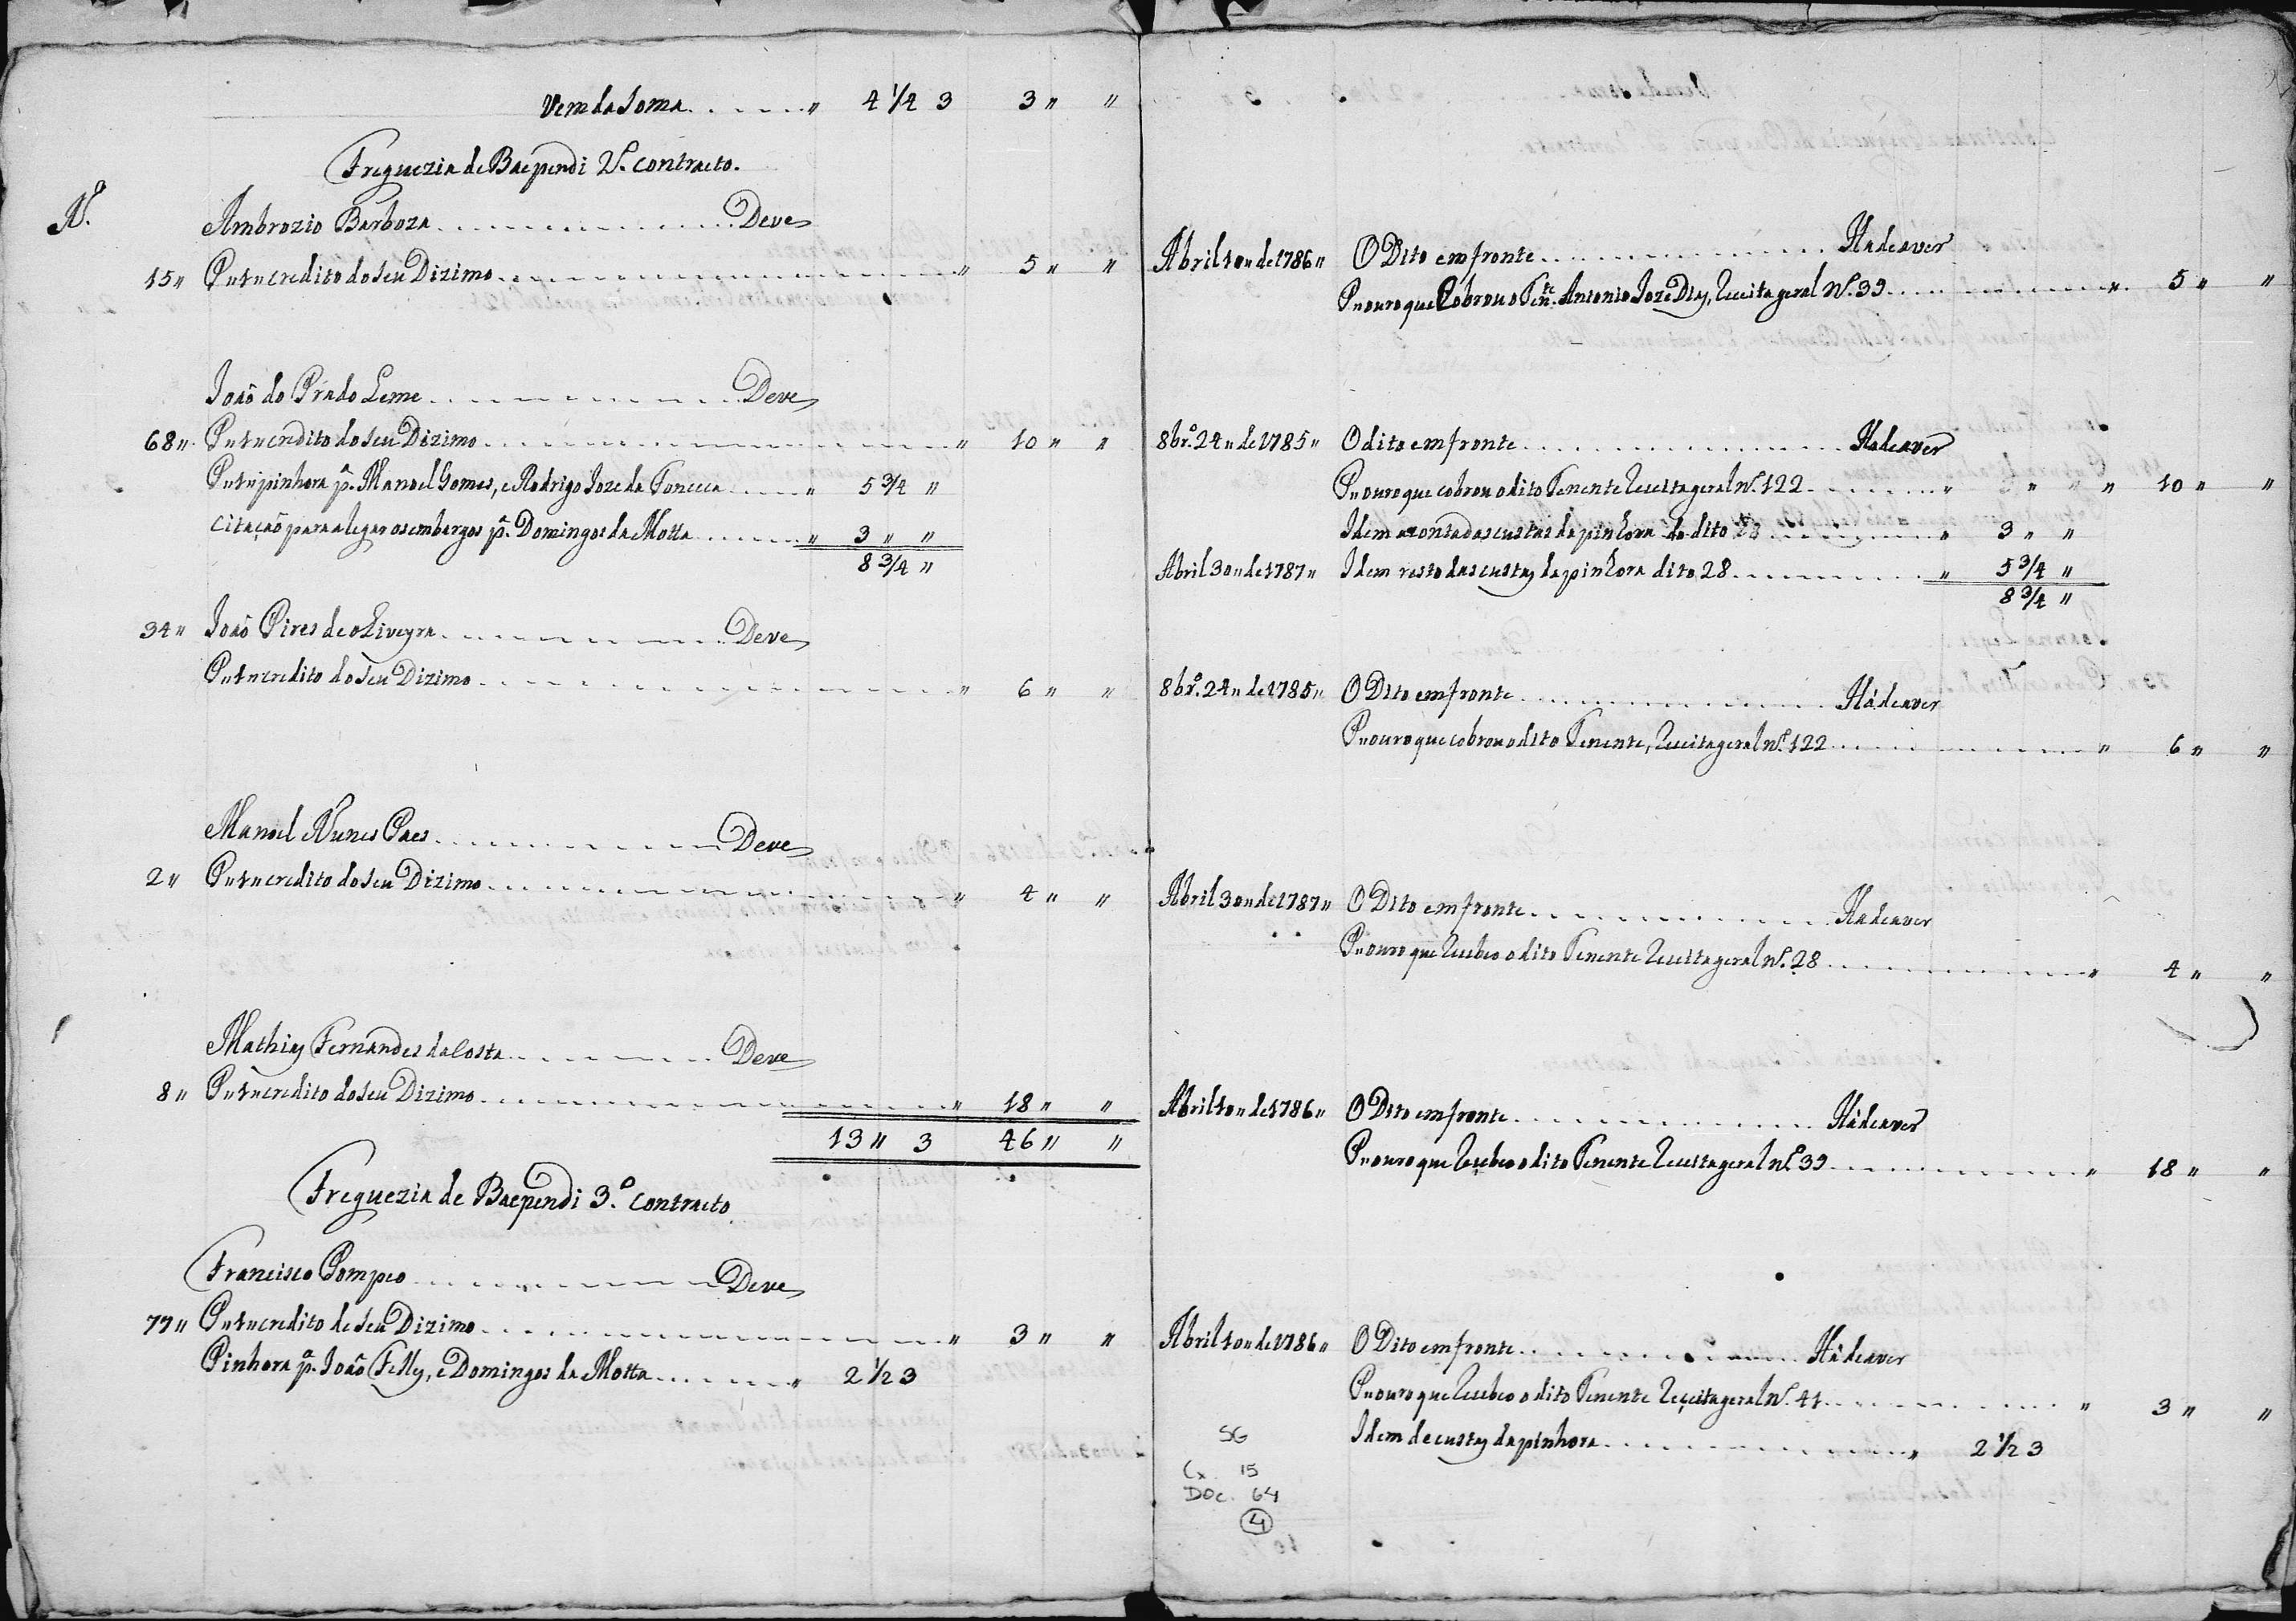 Vem da Soma . . . . . " 4 1/4 3 3 " "
Freguezia de Baependi 2º. Contracto.
Nº.
Ambrozio Barboza . . . . Deve
15 " P " 1 " credito do seu Dizimo . . . . " 5 " "
João do Prado Leme . . . . Deve
68 " P " 1 " credito do seu Dizimo . . . . " 10 " "
P " 1 " pinhora pª. Manoel Gomes, e Rodrigo Joze da Fonceca . . . . " 5 3/4 "
Citação para alegar os embargos pª. Domingos da Motta . . . . " 3 " "
8 3/4 "
34 " João Pires de oLiveyra . . . . Deve
P " 1 " credito do seu Dizimo . . . . " 6 " "
Manoel Nunes Paes . . . . Deve
2 " P " 1 " credito do seu Dizimo . . . . " 4 " "
Mathias Fernandes da Costa . . . . Deve
8 " P " 1 " credito do seu Dizimo . . . . " 18 " "
13 " 3 46 " "
Freguezia de Baependi 3º. Contracto
Francisco Pompeo . . . . Deve
77 " P " 1 " credito de seu Dizimo . . . . " 3 " "
Pinhora pª. João Felly, e Domingos da Motta . . . . " 2 1/2 3
Abril 10 " de 1786 " O Dito em fronte . . . . Hadeaver
P " ouro que Cobrou o Tente. Antonio Joze Dias, Receita geral Nº. 39 . . . . " 5 " "
8brº. 24 " de 1785 " O dito em fronte . . . . Hadeaver
P " ouro que cobrou o dito Tenente Receita geral nº. 122 . . . . " " " " 10 " "
Idem a conta das custas da pinhora do dito . . . . " 3 " "
Abril 30 " de 1787 " Idem resto das custas da pinhora dito 28 . . . . " 5 3/4 "
8 3/4 "
8brº. 24 " de 1785 " O Dito em fronte . . . . Hádeaver
P " ouro que cobrou o dito Tenente, Receita geral nº. 122 . . . . " 6 " "
Abril 30 " de 1787 " O Dito em fronte . . . . Hadeaver
P " ouro que Recebeo o dito Tenente Receita geral nº. 28 . . . . " 4 " "
Abril 10 " de 1786 " O Dito em fronte . . . . Hádeaver
P " ouro que Recebeo o dito Tenente Receita geral nº. 39 . . . . " 18 " "
Abril 10 " de 1786 " O Dito em fronte . . . . Hádeaver
P " ouro que Recebeo o dito Tenente Receita geral nº. 41 . . . . " 3 " "
Idem de custas da pinhora . . . . " 2 1/2 3
SG
Cx. 15
Doc. 64
4